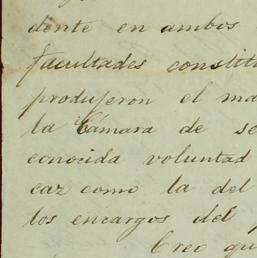 dente en ambos
facultades constit
produjeron el ma
la Cámara de se
conocida voluntad
caz como la del
los encargos del
Creo qu